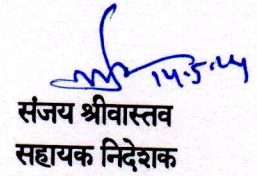 14.5.24
संजय श्रीवास्तव
सहायक निदेशक